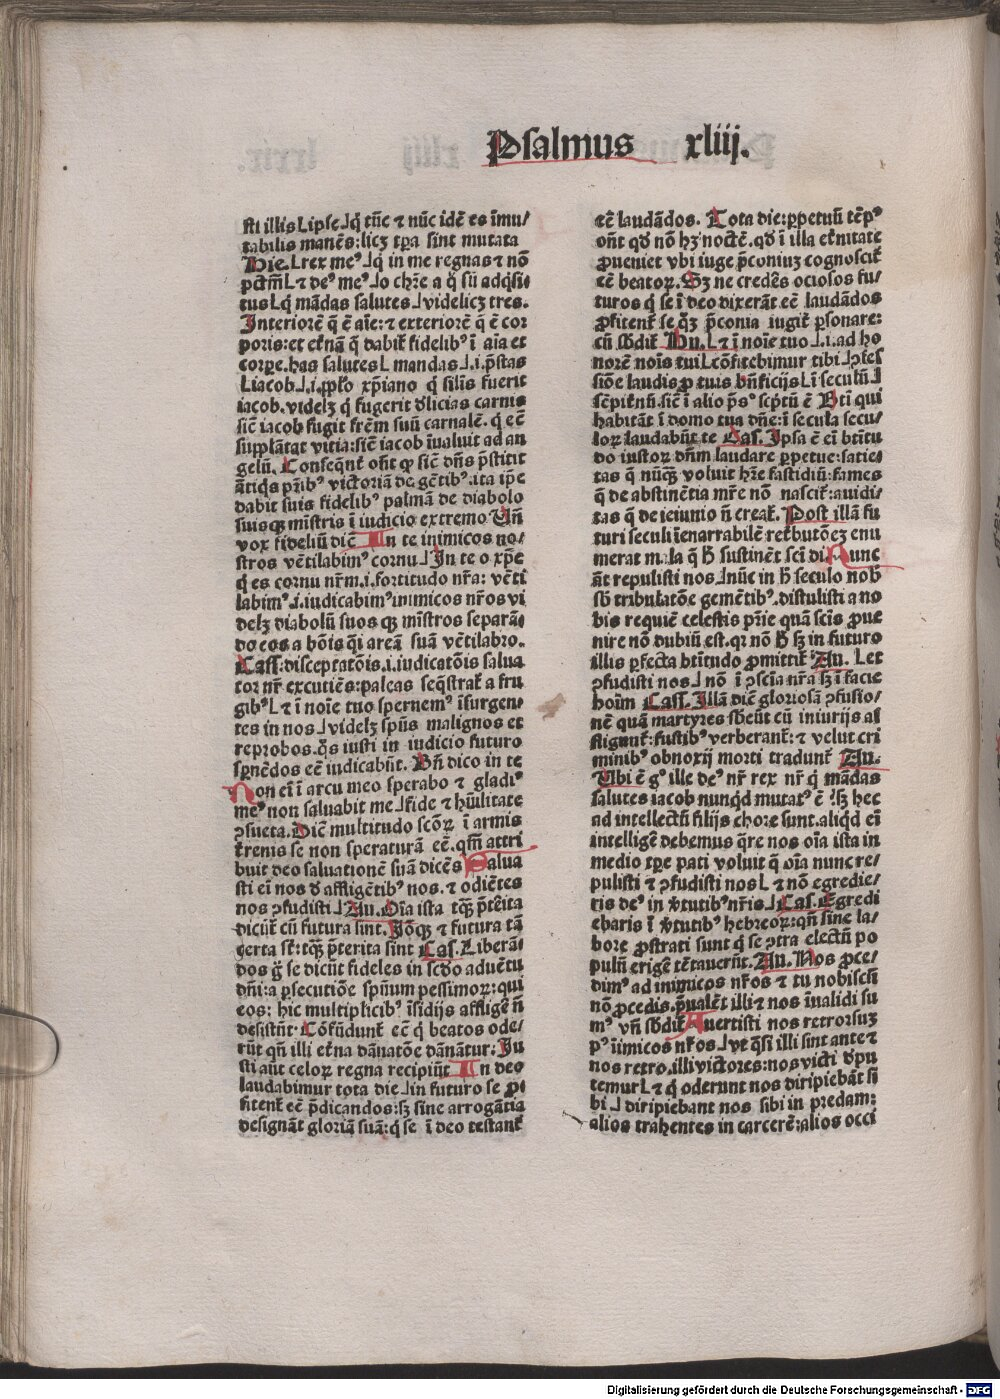 Psalmus xliij.
sti illis Lipse⅃q̄ tūc ⁊ nūc idē es īmu/
tabilis manēs:licꝫ tp̄a sint mutata
Hie.Lrex meꝰ⅃q̄ in me regnas ⁊ nō
pctm̄L⁊ deꝰ meꝰ⅃o chr̄e a q̄ sū adq̄si/
tusLq̄ mādas salutes⅃videlicꝫ tres.
Interiorē q̄ ē aīe:⁊ exteriorē q̄ ē cor
poris:et et̄nā q̄ dabit̄ fidelibꝰ ī aīa et
corpe.has salutesL mandas⅃.i.p̄stas
Liacob⅃.i.pp̄lo xp̄iano q̄ silīs fuerit
iacob.videlꝫ q̄ fugerit d̄licias carnis
sic̄ iacob fugit fr̄em suū carnalē.q̄ eē
supplātat vitia:sic̄ iacob īualuit ad an
gelū. Conseq̄nt̄ on̄t qꝙ sic̄ dn̄s p̄stitit
ātiq̄s pr̄ibꝰ victoriā de gētibꝰ.ita ip̄e
dabit suis fidelibꝰ palmā de diabolo
suisqꝫ mīstris ī iudicio extremo Un̄
vox fideliū diē In te inimicos no/
stros vētilabimꝰ cornu⅃In te o xp̄e
q̄ es cornu nr̄m.i.fortitudo nr̄a: vēti
labimꝰ.i.iudicabimꝰ inimicos nr̄os vi
delꝫ diabolū suos qꝫ mīstros separā/
do eos a bōis q̄i areā suā vētilabro.
Cass:disceptatōis.i.iudicatōis salua
tor nr̄ excutiēs:paleas seq̄strat̄ a fru
gibꝰL⁊ ī noīe tuo spernemꝰ īsurgen/
tes in nos⅃videlꝫ sp̄us malignos et
reprobos.q̄s iusti in iudicio futuro
sp̄nēdos eē iudicabūt. Bn̄ dico in te
Non eī ī arcu meo sperabo ⁊ gladiꝰ
meꝰ non saluabit me⅃fide ⁊ hūilitate
ꝯsueta.Dicē multitudo scōꝝ ī armis
t̄renis se non speraturā eē.qm̄ attri
buit deo saluationē suā dicēs Salua
sti eī nos d̄ affligētibꝰ nos.⁊ odiētes
nos ꝯfudisti⅃Au.Oīa ista tqꝫ̄ p̄tērita
dicūt̄ cū futura sint.Nōqꝫ ⁊ futura tā
certa st̄:tqꝫ̄ p̄terita sint Cas.Liberā/
dos g̊ se dicūt fideles in scd̄o aduētu
dn̄i:a ꝑsecutiōe sp̄num pessimoꝝ:qui
eos: hic multiplicibꝰ īsidijs affligē n̄
desistūt.Cōfūdunt̄ eē q̄ beatos ode/
rūt qn̄ illi et̄na dānatōe dānātur: Iu
sti aūt celoꝝ regna recipiūt In deo
laudabimur tota die⅃in futuro se ꝓ
fitent̄ eē p̄dicandos:sꝫ sine arrogātia
designāt gloriā suā:q̄ se ī deo testant̄
eē laudādos. Tota die:ꝑpetuū tēpꝰ
on̄t qd̄ nō hꝫ noctē.qd̄ ī illa et̄nitate
ꝓueniet vbi iuge p̄coniuꝫ cognoscit̄
eē beatoꝝ. Sꝫ ne credēs ociosos fu/
turos q̄ se ī deo dixerāt eē laudādos
ꝓfitent̄ se qꝫ̄ p̄conia iugit̄ ꝑsonare:
cū sbd̄it̄ Hu.L⁊ ī noīe tuo⅃.i.ad ho
norē noīs tuiLcōfitebimur tibi⅃ꝯfes
siōe laudis ꝓ tuis bn̄ficijsLī seculū⅃
sēpit̄nū.sic̄ ī alio p̄sꝰ scp̄tū ē Bt̄i qui
habitāt ī domo tua dn̄e:ī secula secu/
loꝝ laudabūt te Cas. Ipsa ē eī bt̄itu
do iustoꝝ dn̄m laudare ꝑpetue:satie
tas q̄ nūqꝫ̄ voluit hr̄e fastidiū:fames
q̄ de abstinētia mr̄e nō nascit̄:auidi/
tas q̄ de ieiunio n̄ creat̄. Post illā fu
turi seculi īenarrabilē ret̄butōeꝫ enu
merat mala q̄ h̄ sustinēt sc̄i di Nunc
āt repulisti nos⅃nūc in h̄ seculo nob̄
sb̄ tribulatōe gemētibꝰ.distulisti a no
bis requiē celestis pr̄ie quā sc̄is ꝓue
nire nō dubiū est.qꝛ nō h̄ sꝫ in futuro
illis ꝑfecta bt̄itudo ꝓmittit̄ Au. Let
ꝯfudisti nos⅃nō ī ꝯscīa nr̄a sꝫ ī facie
hoīm Cass. Illā diē gloriosā ꝯfusio/
nē quā martyres sb̄eūt cū iniurijs af
fligunt̄:fustibꝰ verberant̄:⁊ velut cri
minibꝰ obnoxij morti tradunt̄ Au.
Ubi ē gͦ ille deꝰ nr̄ rex nr̄ q̄ mādas
salutes iacob nunqd̄ mutatꝰ ē ?sꝫ hec
ad intellectū filijs chore sunt.aliqd̄ eī
intelligē debemus qr̄e nos oīa ista in
medio tꝑe pati voluit q̄ oīa nunc re/
pulisti ⁊ ꝯfudisti nosL⁊ nō egredie/
ris deꝰ in v̄tutibꝰ nr̄is⅃Cas. Egredi
ebaris ī v̄tutibꝰ hebreoꝝ:qn̄ sine la/
bore ꝓstrati sunt q̄ se ꝯtra electū po
pulū erigē tētauerūt.Au.Nos ꝓce/
dimꝰ ad inimicos nr̄os ⁊ tu nobiscū
nō ꝓcedis.p̄ualēt illi ⁊ nos īualidi su
mꝰ vn̄ sbd̄it̄ Auertisti nos retrorsuꝫ
pꝰ īimicos nr̄os⅃vt q̄si illi sint ante ⁊
nos retro.illi victores:nos victi d̄pu
temurL⁊ q̄ oderunt nos diripiebāt si
bi⅃diripiebant nos sibi in predam:
alios trahentes in carcerē:alios occi
Digitalisierung gefördert durch die Deutsche Forschungsgemeinschaft - DFG